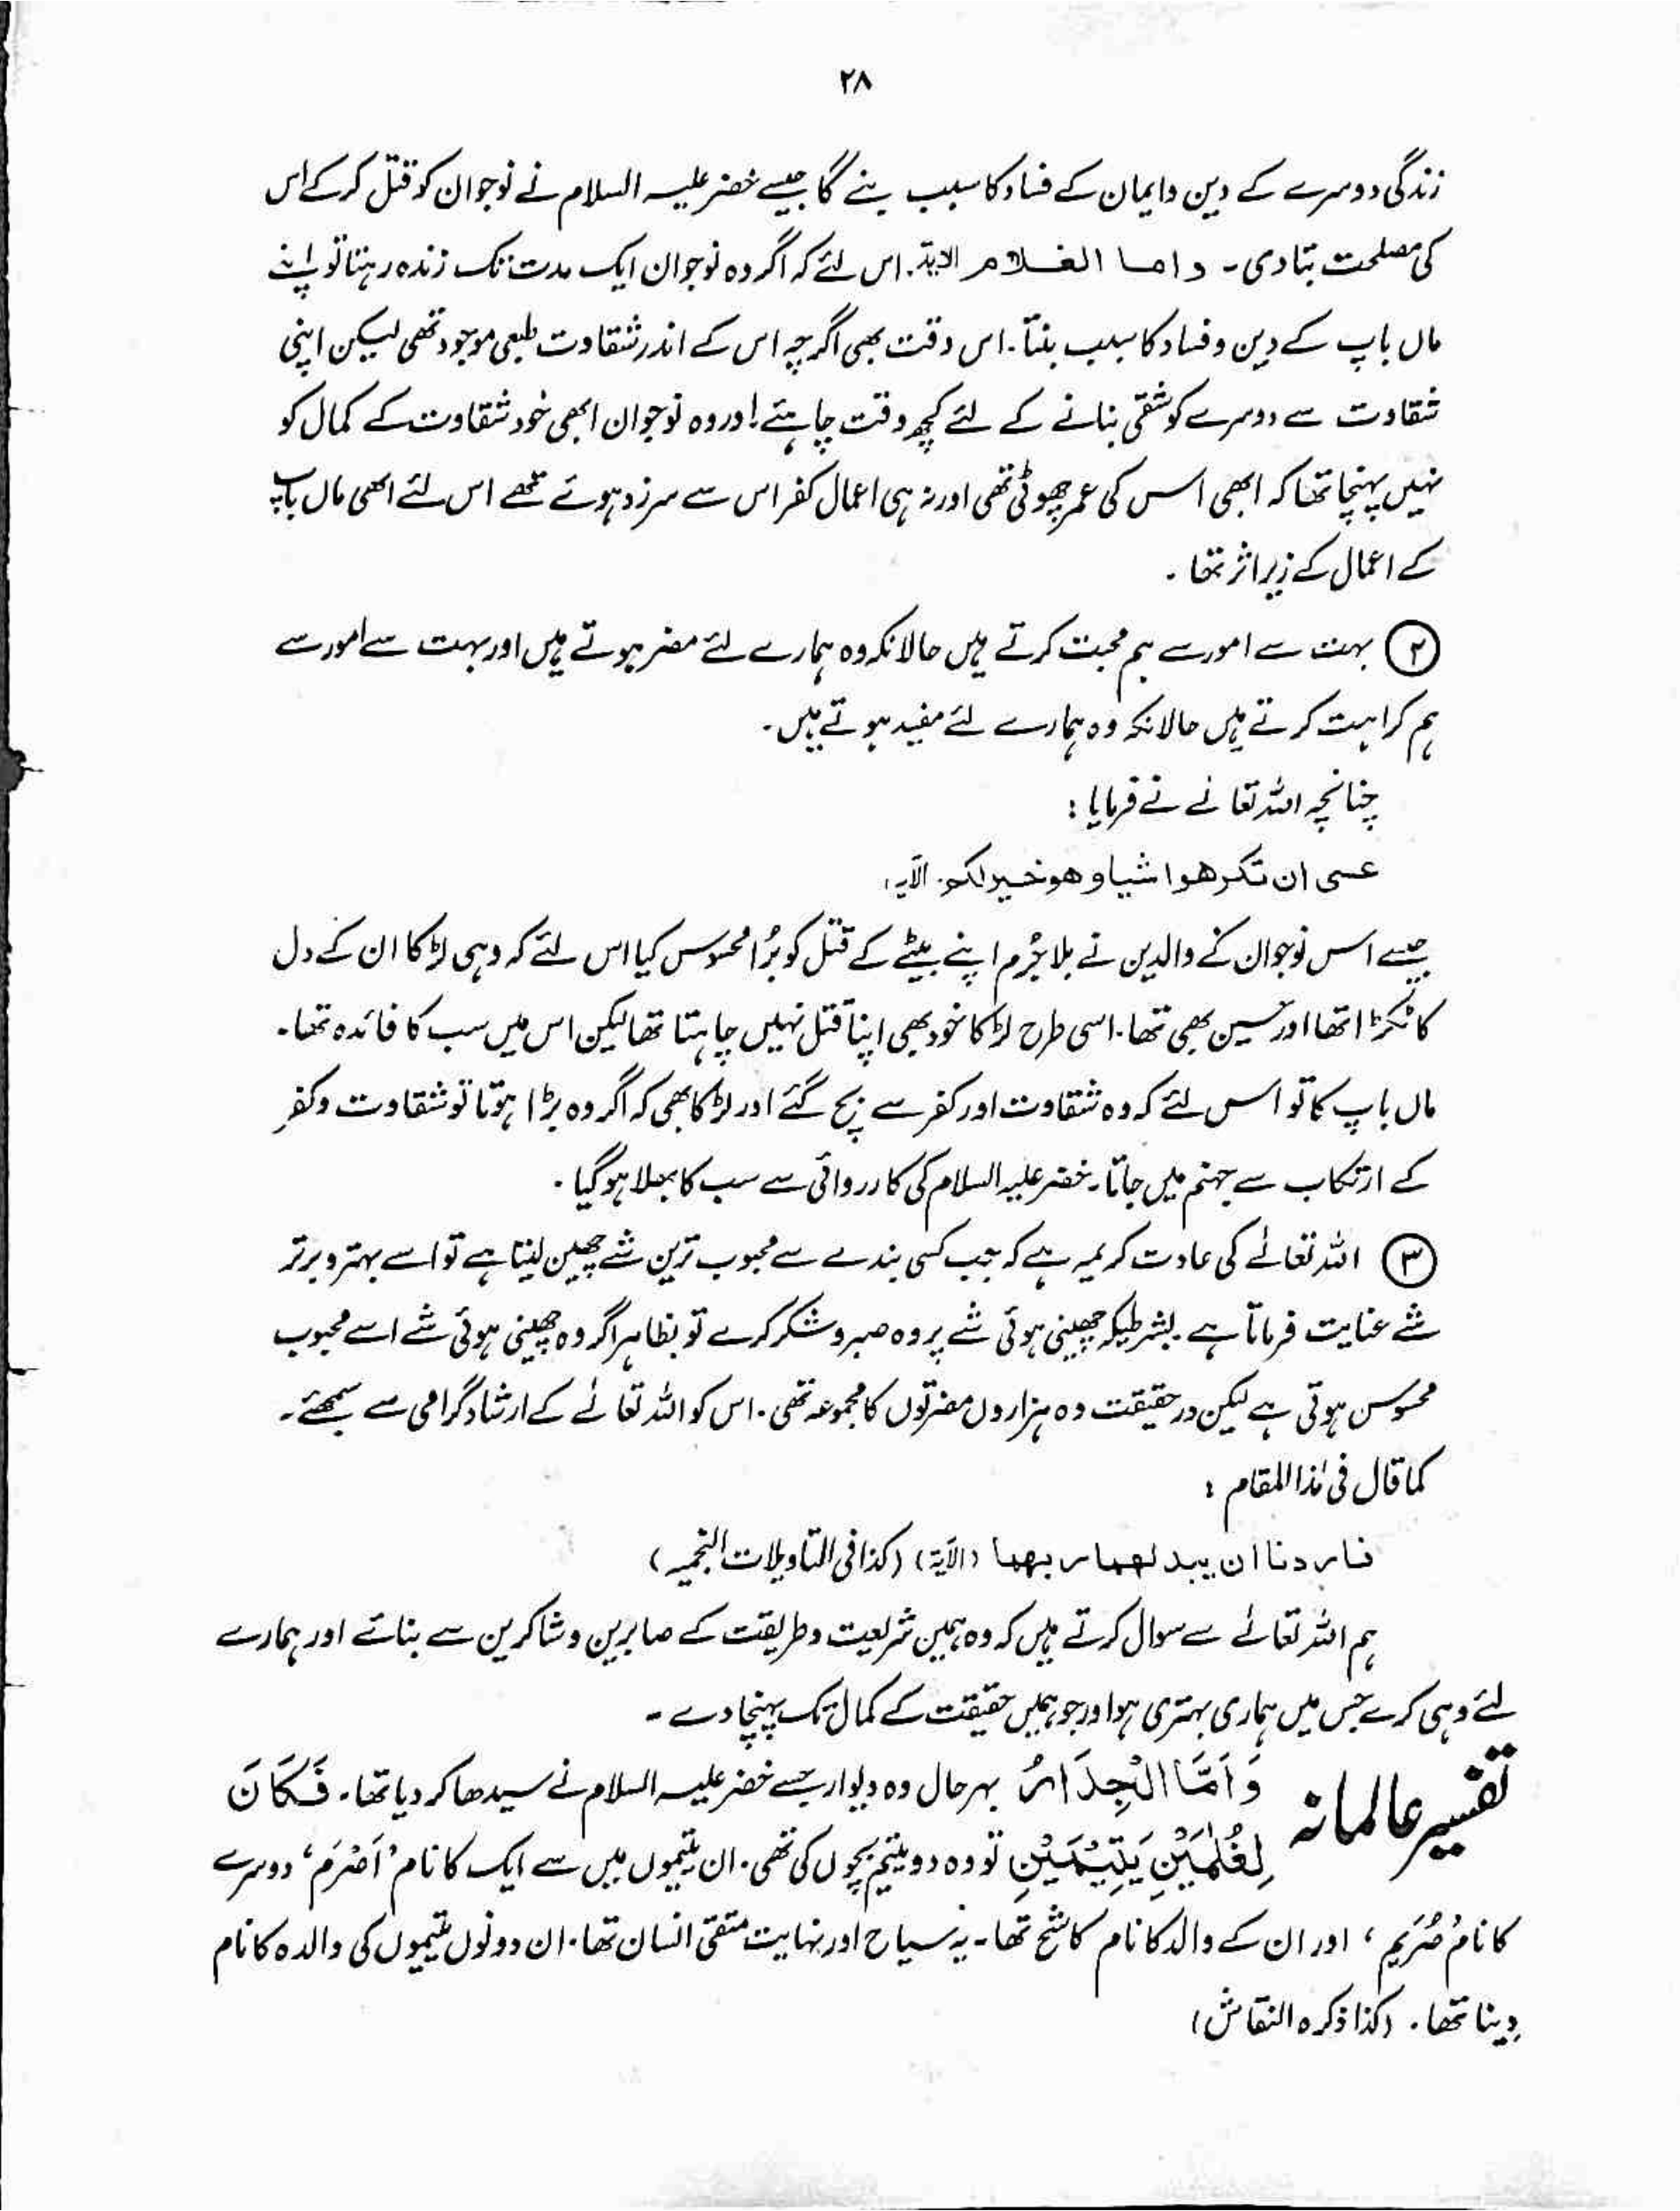 ۲۸
زندگی دوسرے کے دین و ایمان کے فساد کا سبب بنے گا جیسے خضر علیہ السلام نے نوجوان کو قتل کر کے اس
کی مصلحت بتا دی۔ و اما الغلام الایۃ. اس لئے کہ اگر وہ نوجوان ایک مدت تک زندہ رہتا تو اپنے
ماں باپ کے دین و فساد کا سبب بنتا. اس وقت بھی اگرچہ اس کے اندر شقاوت طبعی موجود تھی لیکن اپنی
شقاوت سے دوسرے کو شقی بنانے کے لئے کچھ وقت چاہئے! اور وہ نوجوان ابھی خود شقاوت کے کمال کو
نہیں پہنچا تھا کہ ابھی اس کی عمر چھوٹی تھی اور نہ ہی اعمال کفر اس سے سرزد ہوئے تھے اس لئے ابھی ماں باپ
کے اعمال کے زیر اثر تھا ۔
(۲) بہت سے امور سے ہم محبت کرتے ہیں حالانکہ وہ ہمارے لئے مضر ہوتے ہیں اور بہت سے امور سے
ہم کراہت کرتے ہیں حالانکہ وہ ہمارے لئے مفید ہوتے ہیں۔
چنانچہ اللہ تعالےٰ نے فرمایا :
عسی ان تکرھوا شیاو ھو خیر لکم. الآیہ،
جیسے اس نوجوان کے والدین نے بلا جُرم اپنے بیٹے کے قتل کو بُرا محسوس کیا اس لئے کہ وہی لڑکا ان کے دل
کا ٹکڑا تھا اور حسین بھی تھا. اسی طرح لڑکا خود بھی اپنا قتل نہیں چاہتا تھا لیکن اس میں سب کا فائدہ تھا۔
ماں باپ کا تو اس لئے کہ وہ شقاوت اور کفر سے بچ گئے اور لڑکا بھی کہ اگر وہ بڑا ہوتا تو شقاوت و کفر
کے ارتکاب سے جہنم میں جاتا۔ خضر علیہ السلام کی کارروائی سے سب کا بھلا ہو گیا ۔
(۳) اللہ تعالےٰ کی عادت کریمہ ہے کہ جب کسی بندے سے محبوب ترین شے چھین لیتا ہے تو اسے بہتر و برتر
شے عنایت فرماتا ہے بشرطیکہ چھینی ہوئی شے پر وہ صبر و شکر کرے تو بظاہر اگر وہ چھینی ہوئی شے اسے محبوب
محسوس ہوتی ہے لیکن در حقیقت وہ ہزاروں مضرتوں کا مجموعہ تھی. اس کو اللہ تعالےٰ کے ارشاد گرامی سے سمجھئے۔
کما قال فی ہٰذا المقام :
فاردنا ان یبدلھما ربھما (الآیۃ) (کذا فی التاویلات النجمیہ)
ہم اللہ تعالےٰ سے سوال کرتے ہیں کہ وہ ہمیں شریعت و طریقت کے صابرین و شاکرین سے بنائے اور ہمارے
لئے وہی کرے جس میں ہماری بہتری ہو اور جو ہمیں حقیقت کے کمال تک پہنچا دے ۔
تفسیر عالمانہ وَ اَمَّا الْجِدَارُ بہر حال وہ دیوار جسے خضر علیہ السلام نے سیدھا کر دیا تھا. فَکَانَ
لِغُلٰمَیْنِ یَتِیْمَیْنِ تو وہ دو یتیم بچوں کی تھی. ان یتیموں میں سے ایک کا نام ' اَصْرَم ' دوسرے
کا نام صُرَیم ، اور ان کے والد کا نام کاشح تھا۔ یہ سیاح اور نہایت متقی انسان تھا. ان دونوں یتیموں کی والدہ کا نام
دِینا تھا . (کذا ذکرہ النقاش)